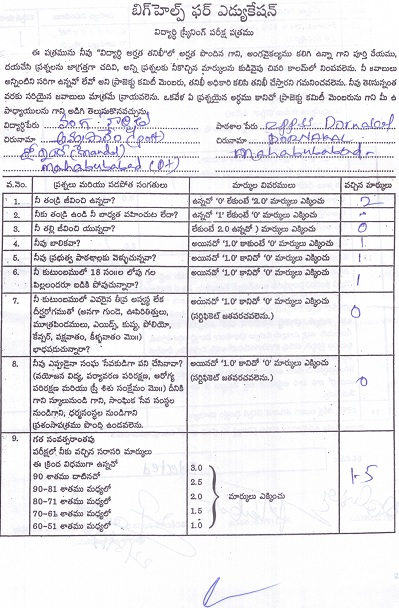 బిగ్‌హెల్ప్ ఫర్ ఎడ్యుకేషన్
విద్యార్థి స్క్రీనింగ్ పరీక్ష పత్రము
ఈ పత్రమును నీవు "విద్యార్థి అర్హత తనిఖీ"లో అర్హత పొందిన గాని, అంగవైకల్యము కలిగి ఉన్నా గాని పూర్తి చేయుము,
దయచేసి ప్రశ్నలను జాగ్రత్తగా చదివి, అన్ని ప్రశ్నలకు నీకొచ్చిన మార్కులను కుడివైపు చివరి కాలమ్‌లో నింపవలెను. నీ జవాబులు
అన్నింటిని సరిగా ఉన్నవో లేవో అని ప్రాజెక్టు కమిటీ మెంబరు, తనిఖీ అధికారి కలిసి తనిఖీ చేస్తారని గమనించవలెను. నీవు తెలిసినంత
వరకు సరియైన జవాబులు మాత్రమే వ్రాయవలెను. ఒకవేళ ఏ ప్రశ్నయైన అర్థము కానిచో ప్రాజెక్టు కమిటీ మెంబరును గాని మీ ఉ
పాధ్యాయులను గాని అడిగి తెలుసుకొనవచ్చును.
విద్యార్థిపేరు పాఠశాల పేరు ZPPSS Dornakal
చిరునామా (post) చిరునామా DORNAKAL
(mandal) mahabubabad
mahabubabad (Dt)
వ.నెం. ప్రశ్నలు మరియు పరపోత సంగతులు మార్కుల వివరములు వచ్చిన మార్కులు
1. నీ తండ్రి జీవించి ఉన్నడా? ఉన్నచో '0' లేకుంటే '2.0' మార్కులు ఎక్కించు 2
2. నీకు తండ్రి ఉండి నీ బాధ్యత వహించుట లేదా? ఉన్నచో '1' లేకుంటే '0' మార్కులు ఎక్కించు
3. నీ తల్లి జీవించి యున్నదా? లేకుంటే 2.0 ఉన్నచో ) మార్కులు ఎక్కించు 0
4. నీవు బాలికవా? అయినచో '1.0' కాకుంటే '0' మార్కులు ఎక్కించు 1
5. నీవు ప్రభుత్వ పాఠశాలకు వెళ్ళుచున్నవా? అయినచో '1.0' కానిచో '0' మార్కులు ఎక్కించు 1
6. నీ కుటుంబములో 18 సం॥ల లోపు గల అయినచో '1.0' కానిచో '0' మార్కులు ఎక్కించు 1
పిల్లలందరూ బడికి పోవుచున్నారా?
7. నీ కుటుంబములో ఎవరైన తీవ్ర అస్వస్థ లేక అయినచో '1.0' కానిచో '0' మార్కులు ఎక్కించు 0
దీర్ఘరోగముతో (అనగా గుండె, ఊపిరితిత్తులు, (సర్టిఫికెట్ జతపరచవలెను.)
మూత్రపిండములు, ఎయిడ్స్, కుష్ఠు, పోలియో,
కేన్సర్, పక్షవాతం, కీళ్ళవాతం మొ॥)
బాధపడుచున్నారా?
8. నీవు ఎప్పుడైనా సంఘ సేవకుడిగా పని చేసినావా? అయినచో '1.0' కానిచో '0' మార్కులు ఎక్కించు 0
(వయోజన విద్య, పర్యావరణ పరిరక్షణ, ఆరోగ్య (సర్టిఫికెట్ జతపరచవలెను.)
పరిరక్షణ మరియు స్త్రీ శిశు సంక్షేమం మొ॥) దీనికి
గాని స్కూలునుండి గాని, సాంఘిక సేవ సంస్థల
నుండిగాని, ధర్మసంస్థల నుండిగాని
ప్రశంసాపత్రము పొంది ఉండవలెను.
9. గత సంవత్సరాంతపు
పరీక్షలో నీకు వచ్చిన సరాసరి మార్కులు
ఈ క్రింద విధముగా ఉన్నచో 3.0
90 శాతము దాటినచో 2.5
90-81 శాతము మధ్యలో 2.0 మార్కులు ఎక్కించు 1.5
80-71 శాతము మధ్యలో 1.5
70-61 శాతము మధ్యలో 1.0
60-51 శాతము మధ్యలో